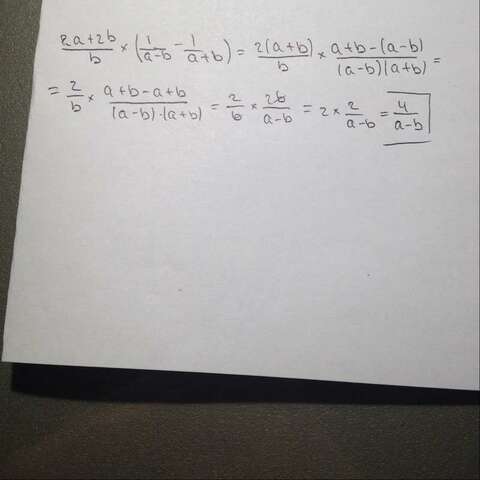 2a+2b/b × (1/a-b - 1/a+b) = 2(a+b)/b × a+b-(a-b)/(a-b)(a+b) =
= 2/b × a+b-a+b/(a-b)·(a+b) = 2/b × 2b/a-b = 2 × 2/a-b = 4/a-b